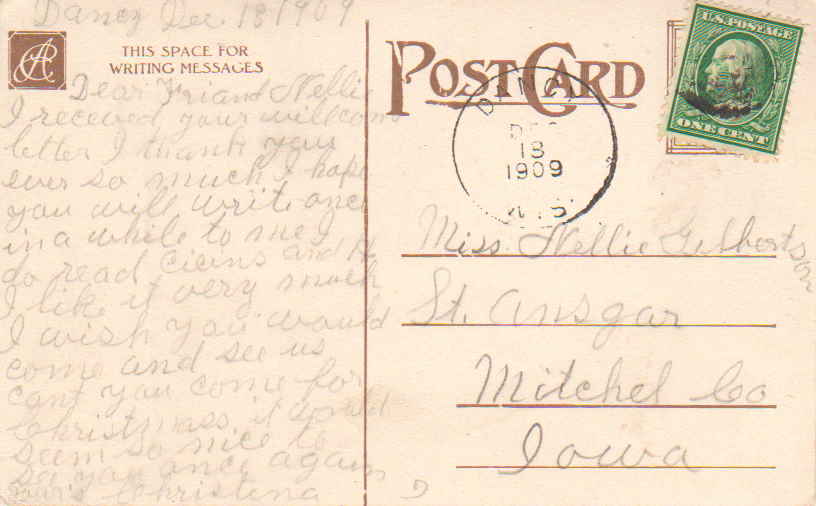 Dancy Dec. 18 1909
THIS SPACE FOR
WRITING MESSAGES
Dear Friand Nellie
I receved your willcome
letter I thank you
ever so much I hope
you will write once
in a while to me I
do read and
I like it very much
I wish you would
come and see us
cant you come for
Christmass it would
seem so nice to
se you once again
Christina
POST CARD
DANCY
DEC
18
1909
WIS
U.S. POSTAGE
ONE CENT
Miss Nellie Gilbertson
St. Ansgar
Mitchel Co
Iowa